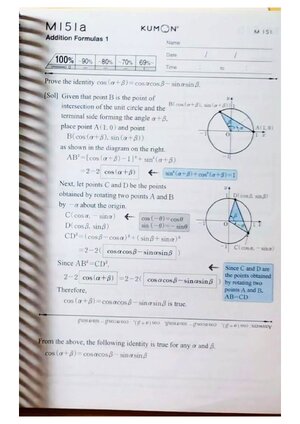 M151a
KUMON
M 151
Addition Formulas 1
Name
Date / /
100% ~90% ~80% ~70% 69%~
Time : to :
Prove the identity cos(α+β)=cosαcosβ−sinαsinβ.
[Sol] Given that point B is the point of
intersection of the unit circle and the
terminal side forming the angle α+β,
place point A(1, 0) and point
B(cos(α+β), sin(α+β))
as shown in the diagram on the right.
AB²=[cos(α+β)−1]²+sin²(α+β)
=2−2 cos(α+β) ← sin²(α+β)+cos²(α+β)=1
B(cos(α+β), sin(α+β))
A(1, 0)
Next, let points C and D be the points
obtained by rotating two points A and B
by −α about the origin.
C(cosα, −sinα) ← cos(−θ)=cosθ
D(cosβ, sinβ) sin(−θ)=−sinθ
CD²=(cosβ−cosα)²+(sinβ+sinα)²
=2−2(cosαcosβ−sinαsinβ)
D(cosβ, sinβ)
C(cosα, −sinα)
Since AB²=CD²,
2−2 cos(α+β)=2−2(cosαcosβ−sinαsinβ)
← Since C and D are
the points obtained
by rotating two
points A and B,
AB=CD
Therefore,
cos(α+β)=cosαcosβ−sinαsinβ is true.
From the above, the following identity is true for any α and β.
cos(α+β)=cosαcosβ−sinαsinβ